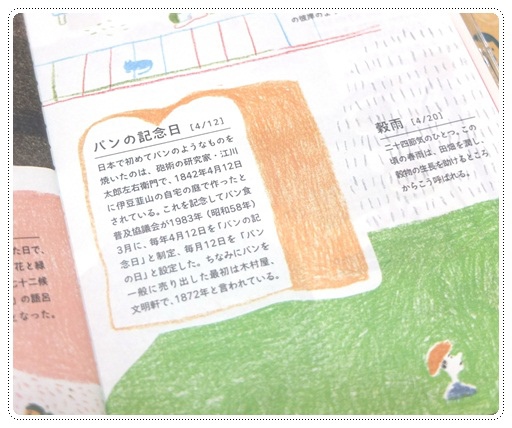 の彼岸のよ
パンの記念日 [4/12]
日本で初めてパンのようなものを
焼いたのは、砲術の研究家・江川
太郎左右衛門で、1842年4月12日
に伊豆韮山の自宅の庭で作ったと
されている。これを記念してパン食
普及協議会が1983年（昭和58年）
3月に、毎年4月12日を「パンの記
念日」と制定、毎月12日を「パン
の日」と設定した。ちなみにパンを
一般に売り出した最初は木村屋、
文明軒で、1872年と言われている。
穀雨 [4/20]
二十四節気のひとつ。この
頃の春雨は、田畑を潤し、
穀物の生長を助けるところ
からこう呼ばれる。
た日で、
花と緑
七十二候
」の語呂
となった。